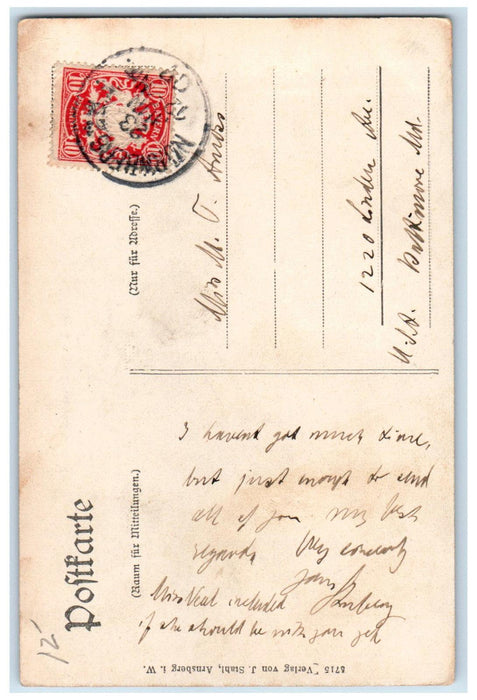 Postkarte
(Nur für Adresse.)
(Raum für Mitteilungen.)
10 10
BAYERN
NÜRNBERG
Miss M. T.
1220 Linden Av.
Baltimore Md.
U.S.A.
I havent got much time,
but just enough to send
all of you my best
regards. Very sincerely
Yours
Miss Veal included
if she should be with you yet
12-
8715 Verlag von J. Stahl, Arnsberg i. W.